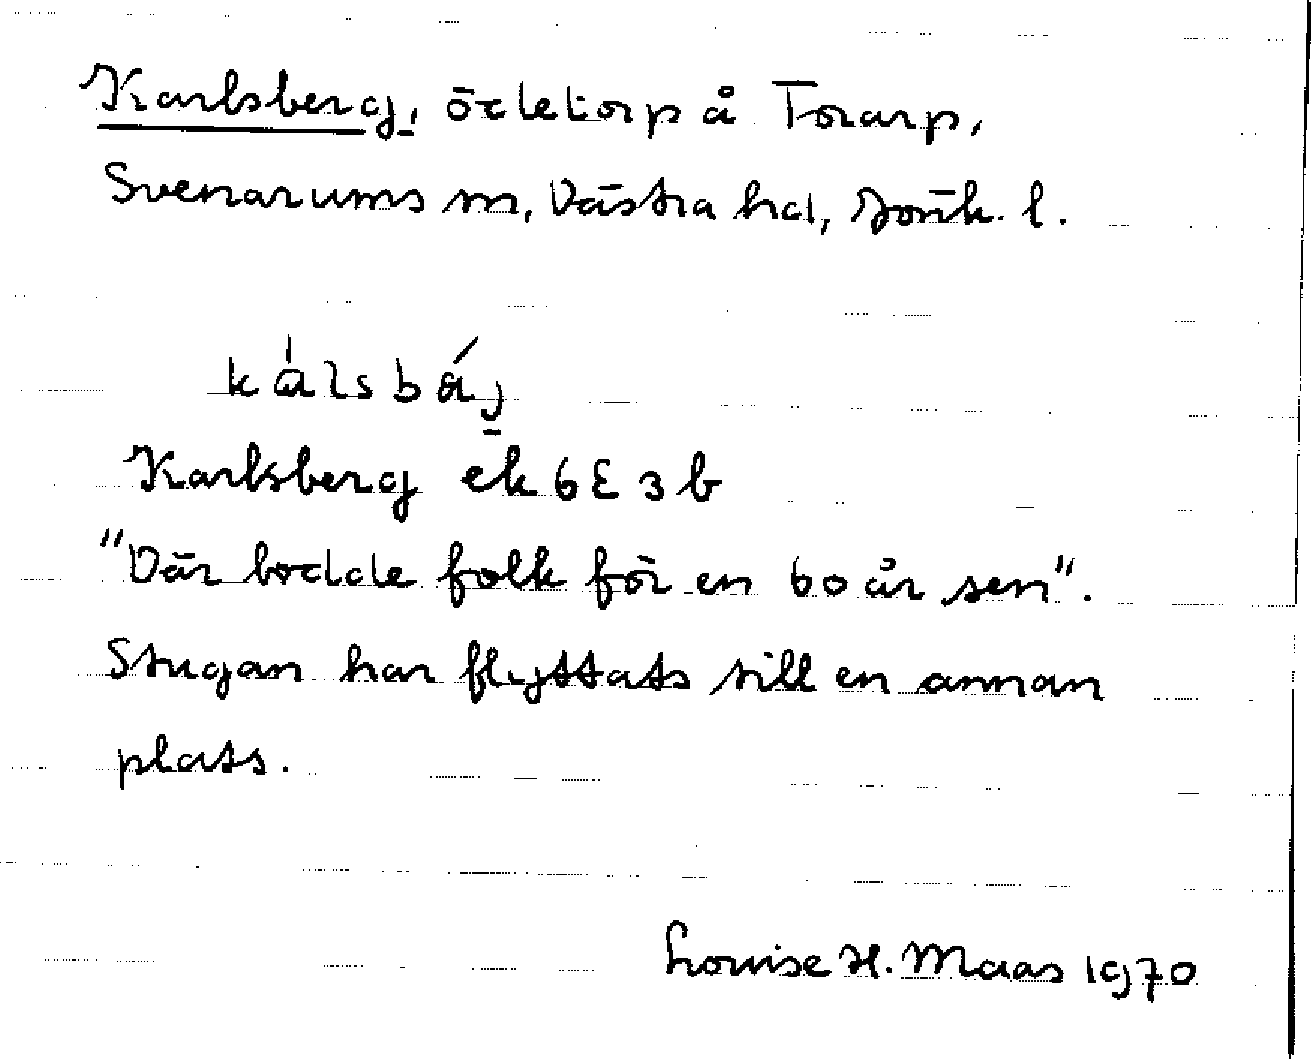 Karlsberg, ödetorp å Torarp,
Svenarums sn, Västra hd, Jönk. l.
kálsbáj
Karlsberg ek 6E3b
"Där bodde folk för en 60 år sen".
Stugan har flyttats till en annan
plats.
Louise H. Maas 1970